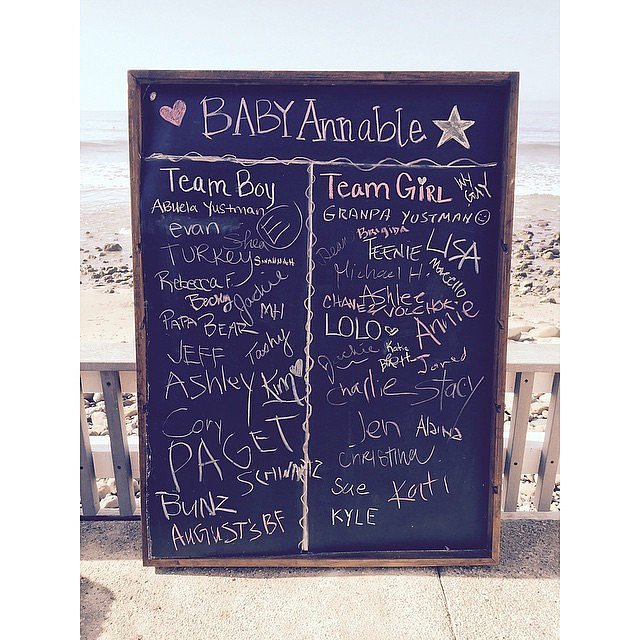 BABY Annable
Team Boy
Abuela Yustman
evan
Shea
E
TURKEY
SAVANNAH
Rebecca F.
Jackie
PAPA BEAR
MH
JEFF
Tashy
Ashley
Kim
Cory
PAGET
SCHWARTZ
BUNZ
AUGUST'S BF
Team GiRL
GRANPA YUSTMAN
Brigida
TEENIE
LISA
Michael H.
Marcello
Ashlee
CHANEZ VOLCHOK
LOLO
Annie
Katie
Brett
Jared
Charlie
Stacy
Jen
Alaina
CHRISTINA
Sue
Kati
KYLE